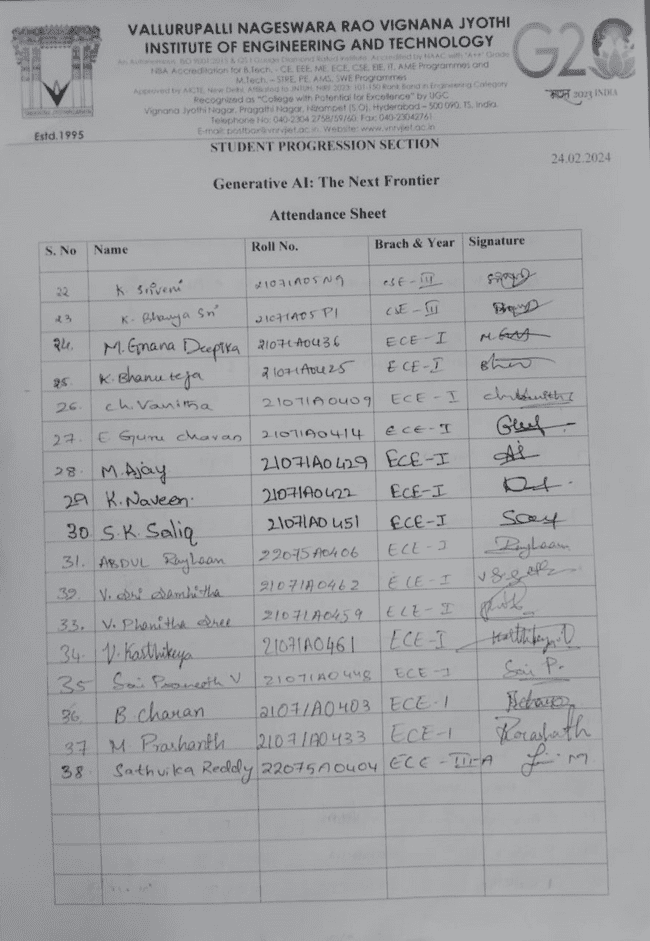 VALLURUPALLI NAGESWARA RAO VIGNANA JYOTHI
INSTITUTE OF ENGINEERING AND TECHNOLOGY
G20
NBA Accreditation for B.Tech. - CE, EEE, ME, ECE, CSE, EIE, IT, AME Programmes and
M.Tech. - STRE, PE, AMS, SWE Programmes
Recognized as "College with Potential for Excellence" by UGC
Vignana Jyothi Nagar, Pragathi Nagar, Nizampet (S.O), Hyderabad – 500 090, TS, India.
Telephone No: 040-2304 2758/59/60, Fax: 040-23042761
E-mail: postbox@vnrvjiet.ac.in, Website: www.vnrvjiet.ac.in
2023 INDIA
Estd.1995
STUDENT PROGRESSION SECTION
24.02.2024
Generative AI: The Next Frontier
Attendance Sheet
S. No Name Roll No. Brach & Year Signature
22 K Sriveni 21071A05N9 CSE-III
23 K. Bhavya Sri 21071A05P1 CSE-III
24. M. Gnana Deepika 21071A0436 ECE-I
25. K. Bhanu teja 21071A0425 ECE-I
26. ch. Vanitha 21071A0409 ECE-I
27. E Guru charan 21071A0414 ECE-I
28. M. Ajay 21071A0429 ECE-I
29 K. Naveen. 21071A0422 ECE-I
30. S.K. Saliq 21071A0451 ECE-I
31. ABDUL Rayhaan 22075A0406 ECE-I Rayhaan
32. V. Sri Samhitha 21071A0462 ECE-I
33. V. Phanitha Sree 21071A0459 ECE-I
34. V. Karthikeya 21071A0461 ECE-I Karthikeya.V
35 Sai Praneeth V 21071A0448 ECE-I Sai P.
36. B. charan 21071A0403 ECE-I
37 M. Prashanth 21071A0433 ECE-I Prashath
38. Sathvika Reddy 22075A0404 ECE-III-A